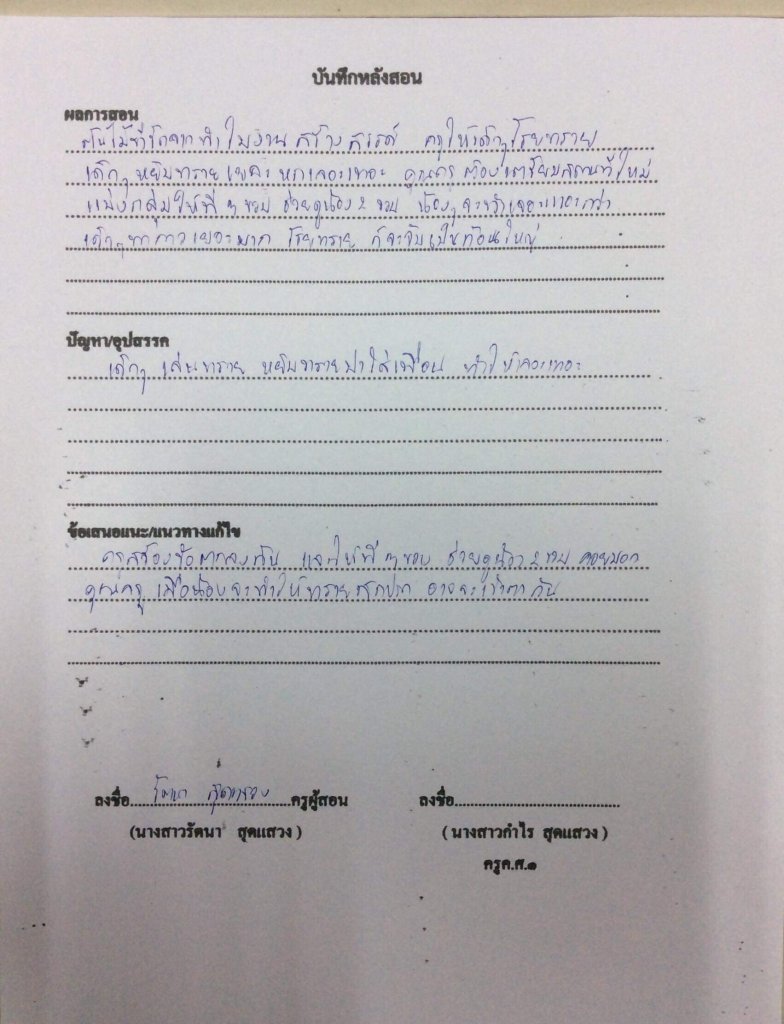 บันทึกหลังสอน
ผลการสอน
ต้นไม้ที่ ทำใบงานสร้างสรรค์ ครูให้เด็กๆโรยทราย
เด็กๆ หยิบทรายเยอะ หกเลอะเทอะ คุณครูต้องเตรียมสถานที่ใหม่
แบ่งกลุ่มให้พี่ ๓ ขวบ ช่วยดูน้อง ๒ ขวบ น้องๆจะทำเลอะเทอะกว่า
เด็กๆทากาวเยอะมาก โรยทราย ก็จะจับเป็นก้อนใหญ่
ปัญหา/อุปสรรค
เด็กๆ เล่นทราย หยิบทรายปาใส่เพื่อน ทำให้เลอะเทอะ
ข้อเสนอแนะ/แนวทางแก้ไข
ครูสร้างข้อตกลงกัน และให้พี่ ๓ ขวบ ช่วยดูน้อง ๒ ขวบ คอยบอก
คุณครู เมื่อน้องจะทำให้ทรายสกปรก อาจจะเข้าตากัน
ลงชื่อ รัตนา สุดแสวง ครูผู้สอน ลงชื่อ
(นางสาวรัตนา สุดแสวง) (นางสาวกำไร สุดแสวง)
ครูค.ศ.๑